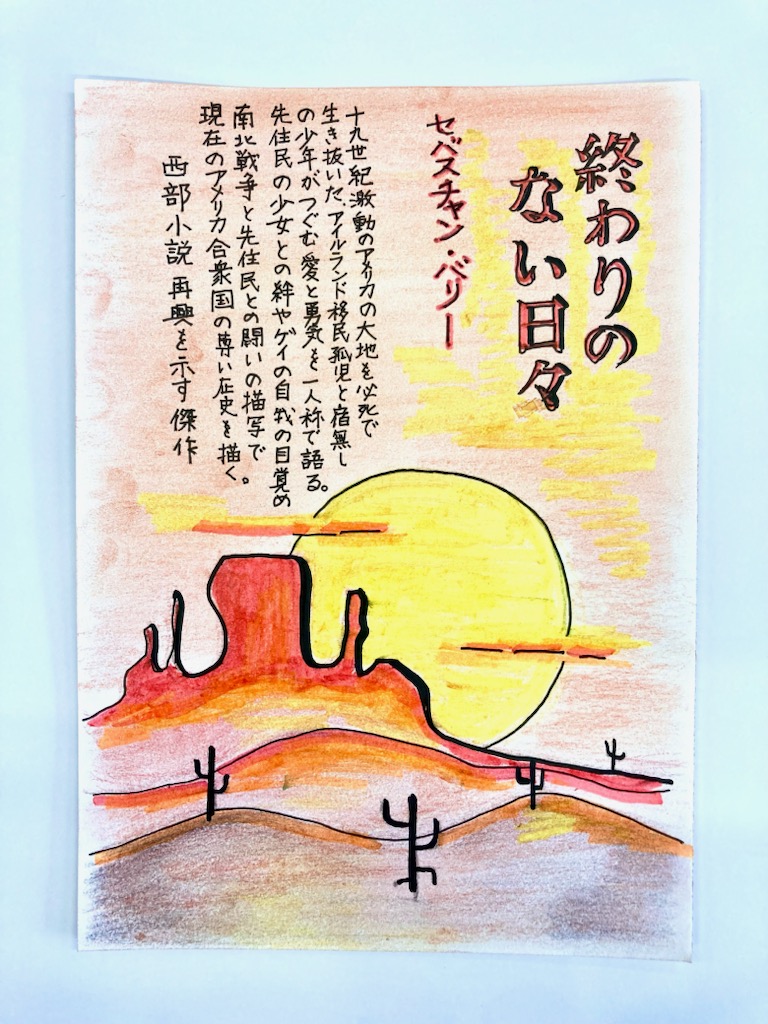 終わりの
ない日々
セバスチャン・バリー
十九世紀激動のアメリカの大地を必死で
生き抜いた、アイルランド移民孤児と宿無し
の少年がつぐむ愛と勇気を一人称で語る。
先住民の少女との絆やゲイの自我の目覚め
南北戦争と先住民との闘いの描写で
現在のアメリカ合衆国の専い歴史を描く。
西部小説再興を示す傑作